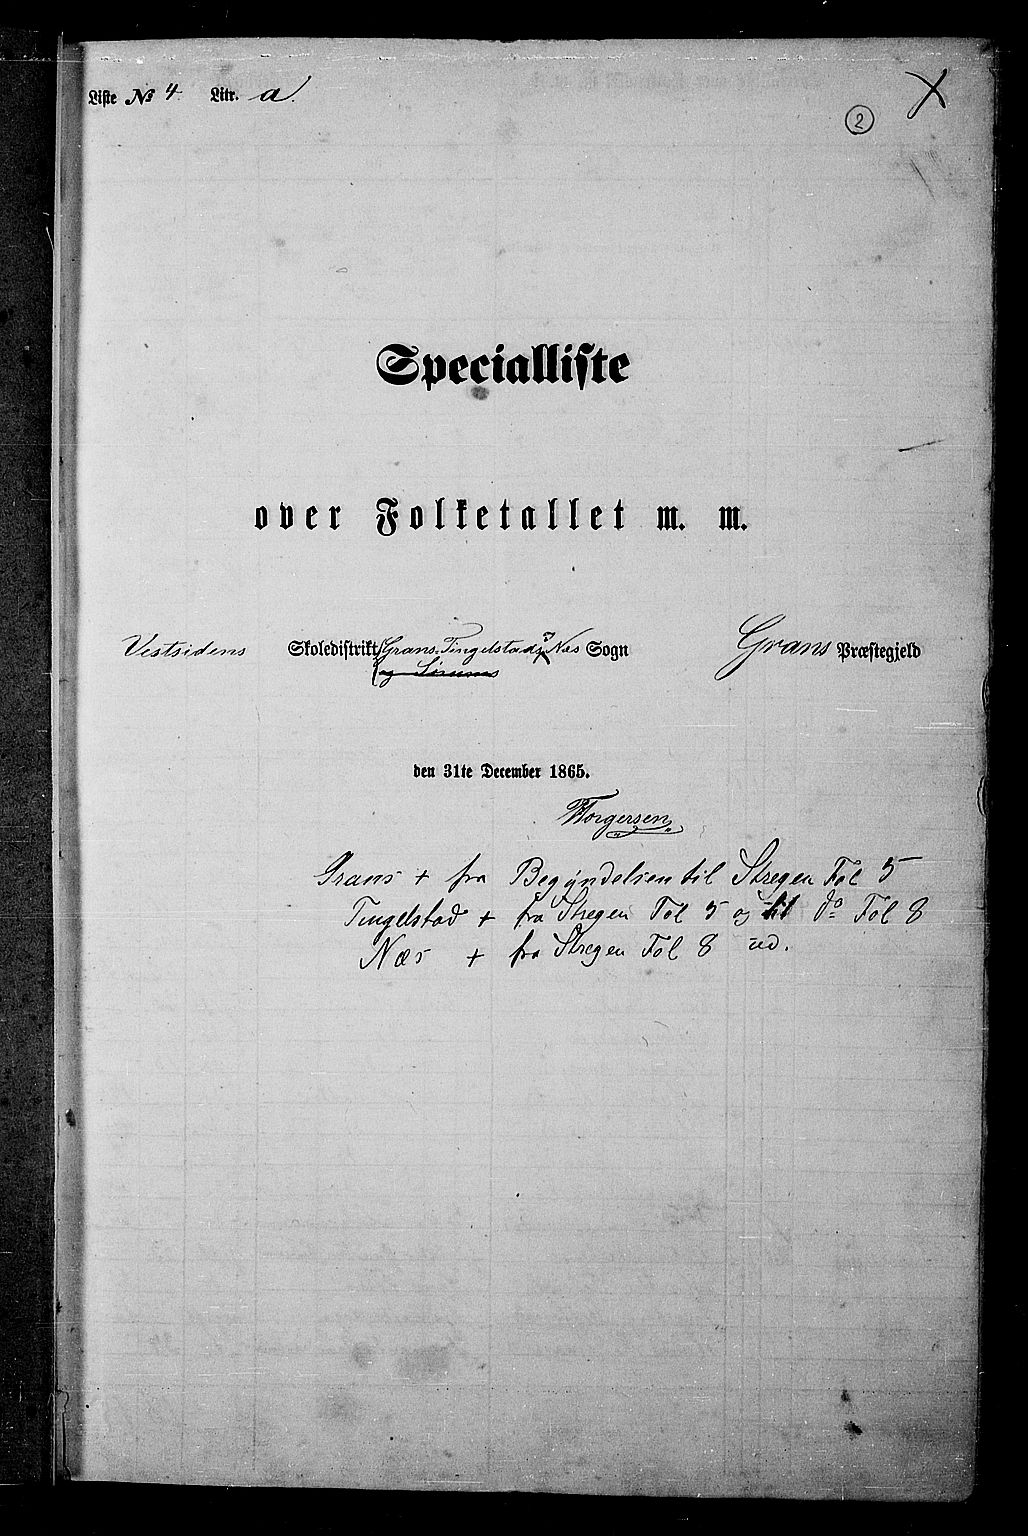 Liste № 4 Litr. a.
2
Specialliste
over Folketallet m. m.
Vestsidens Skoledistrikt Grans, Tingelstads og Næs Sogn Grans Præstegjeld
og Sørums
den 31te December 1865.
Torgersen
Grans + fra Begyndelsen til Stregen Fol 5
Tingelstad + fra Stregen Fol 5 og til do Fol 8
Næs + fra Stregen Fol 8 ud.